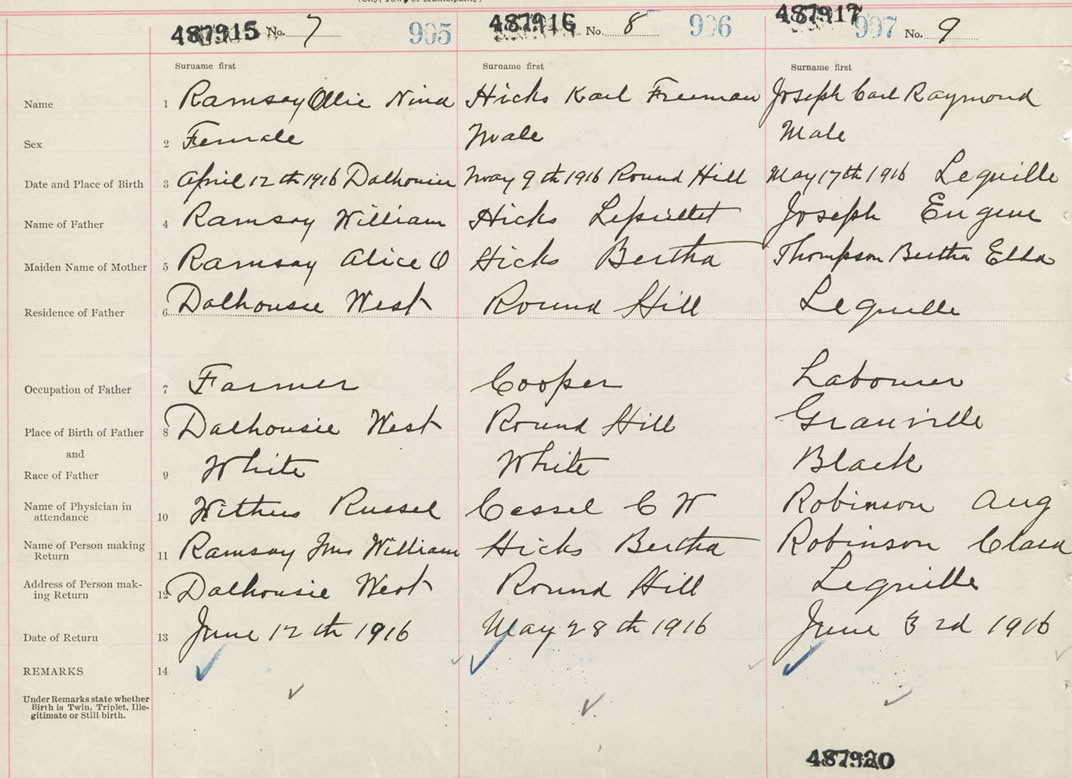 487915 No. 7 995 487916 No. 8 996 487917 997 No. 9
Surname first Surname first Surname first
Name 1 Ramsay Ollie Nina Hicks Karl Freeman Joseph Carl Raymond
Sex 2 Female Male Male
Date and Place of Birth 3 April 12th 1916 Dalhousie May 9th 1916 Round Hill May 17th 1916 Lequille
Name of Father 4 Ramsay William Hicks Joseph Eugene
Maiden Name of Mother 5 Ramsay Alice O Hicks Bertha Thompson Bertha Elda
Residence of Father 6 Dalhousie West Round Hill Lequille
Occupation of Father 7 Farmer Cooper Labourer
Place of Birth of Father 8 Dalhousie West Round Hill Granville
and
Race of Father 9 White White Black
Name of Physician in
attendance 10 Russel C W Robinson Aug
Name of Person making
Return 11 Ramsay Mrs William Hicks Bertha Robinson Clara
Address of Person mak-
ing Return 12 Dalhousie West Round Hill Lequille
Date of Return 13 June 12th 1916 May 28th 1916 June 3rd 1916
REMARKS 14
Under Remarks state whether
Birth is Twin, Triplet, Ille-
gitimate or Still-birth.
487920